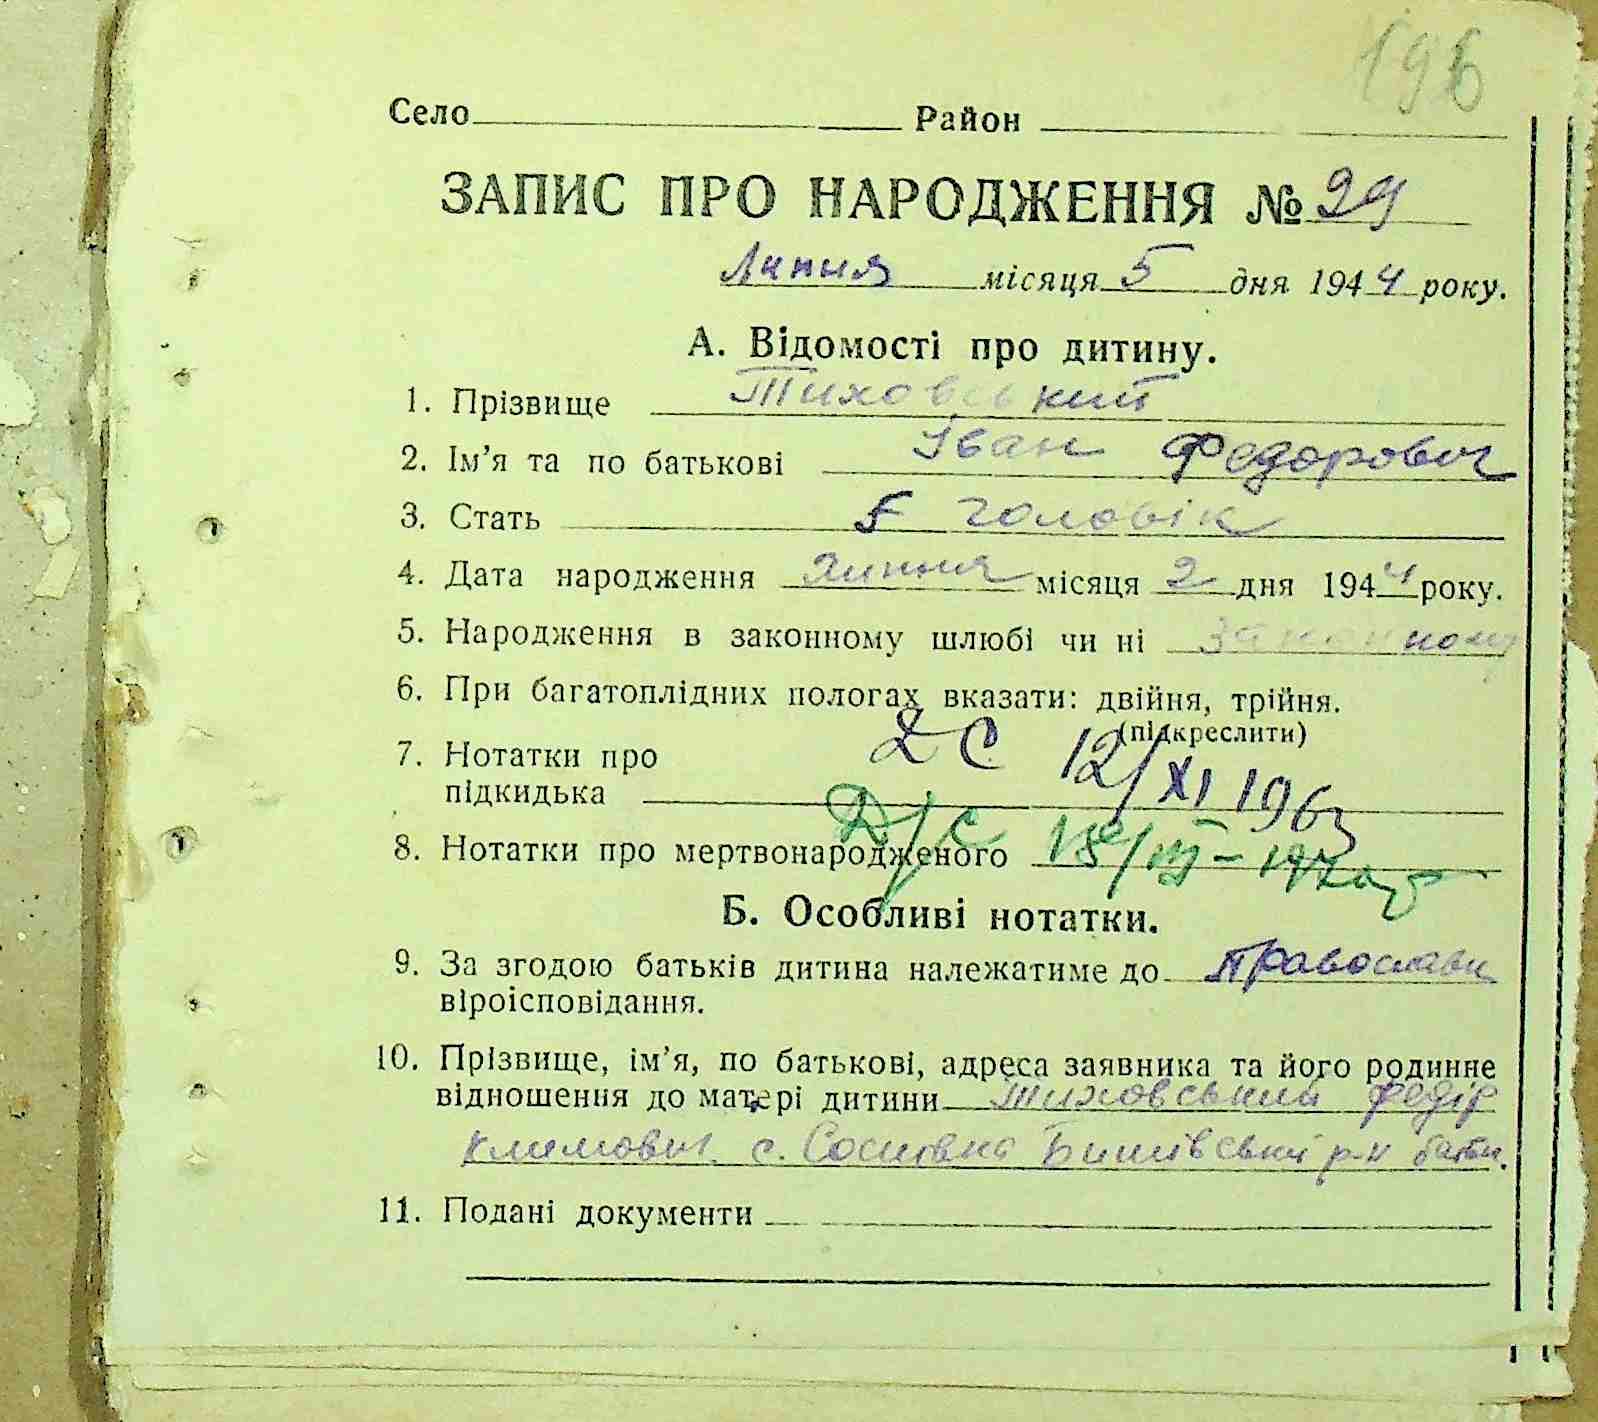 196
Село Район
ЗАПИС ПРО НАРОДЖЕННЯ № 29
Липня місяця 5 дня 1944 року.
А. Відомості про дитину.
1. Прізвище Тиховський
2. Ім'я та по батькові Іван Федорович
3. Стать чоловік
4. Дата народження Липня місяця 2 дня 1944 року.
5. Народження в законному шлюбі чи ні законному
6. При багатоплідних пологах вказати: двійня, трійня.
(підкреслити)
7. Нотатки про
підкидька
2 С 12/XI 1963
8. Нотатки про мертвонародженого
Д/С
Б. Особливі нотатки.
9. За згодою батьків дитина належатиме до Православн
віроісповідання.
10. Прізвище, ім'я, по батькові, адреса заявника та його родинне
відношення до матері дитини Тиховський Федір
Климович. с. Соснівка р-н батьк.
11. Подані документи